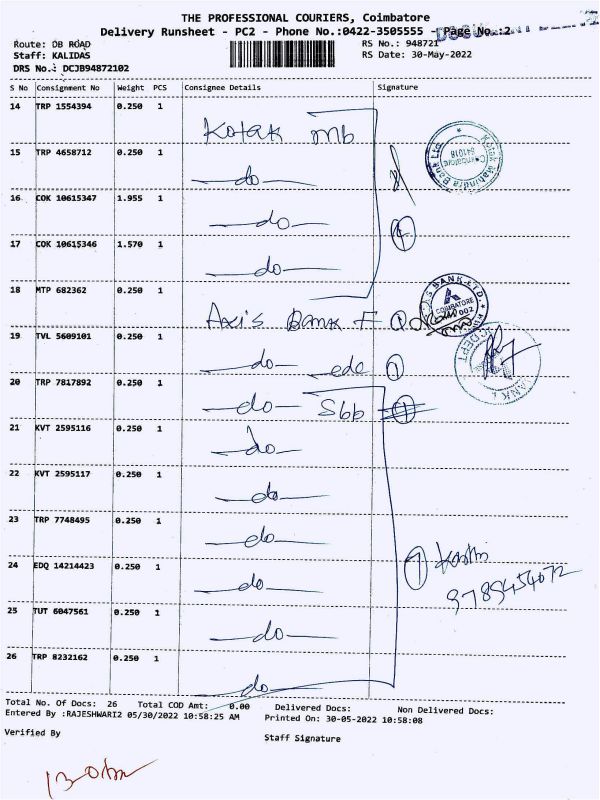 THE PROFESSIONAL COURIERS, Coimbatore
Delivery Runsheet - PC2 - Phone No.:0422-3505555 - Page No.:2
Route: DB ROAD
RS No.: 948721
Staff: KALIDAS
RS Date: 30-May-2022
DRS No.: DCJB94872102
S No Consignment No Weight PCS Consignee Details Signature
14 TRP 1554394 0.250 1 Kotak mb
15 TRP 4658712 0.250 1 do
16 COK 10615347 1.955 1 do
17 COK 10615346 1.570 1 do
4
Kotak Mahindra Bank Ltd.
Coimbatore
641018
18 MTP 682362 0.250 1 Axis Bank F
BANK LTD.
COIMBATORE
002
19 TVL 5609101 0.250 1 do edc 1
DEPT
BANK L
20 TRP 7817892 0.250 1 do Sbb
21 KVT 2595116 0.250 1 do
22 KVT 2595117 0.250 1 do
23 TRP 7748495 0.250 1 do
24 EDQ 14214423 0.250 1 do
7
25 TUT 6047561 0.250 1 do
26 TRP 8232162 0.250 1 do
Total No. Of Docs: 26 Total COD Amt: 0.00 Delivered Docs: Non Delivered Docs:
Entered By :RAJESHWARI2 05/30/2022 10:58:25 AM Printed On: 30-05-2022 10:58:08
Verified By
Staff Signature